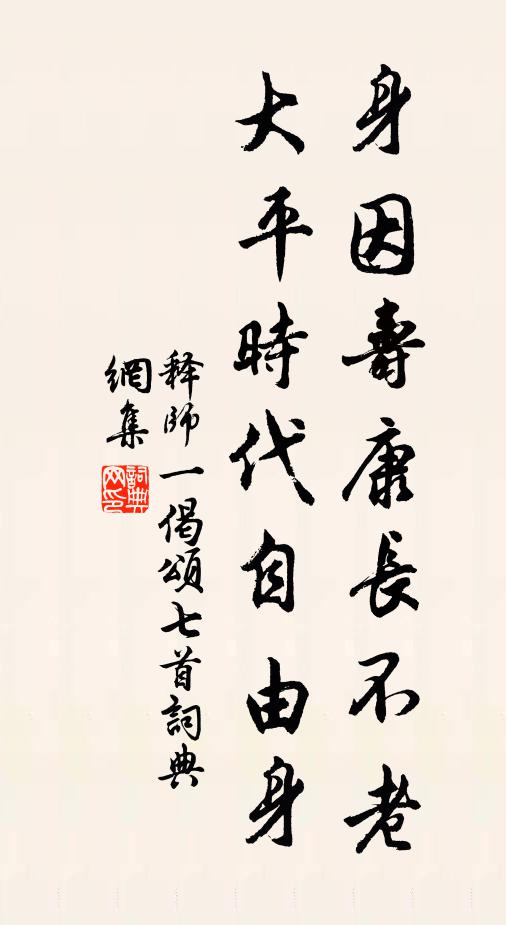 身因壽康長不老
大平時代自由身
释師一偈頌七首詞典
網集
詞典網印